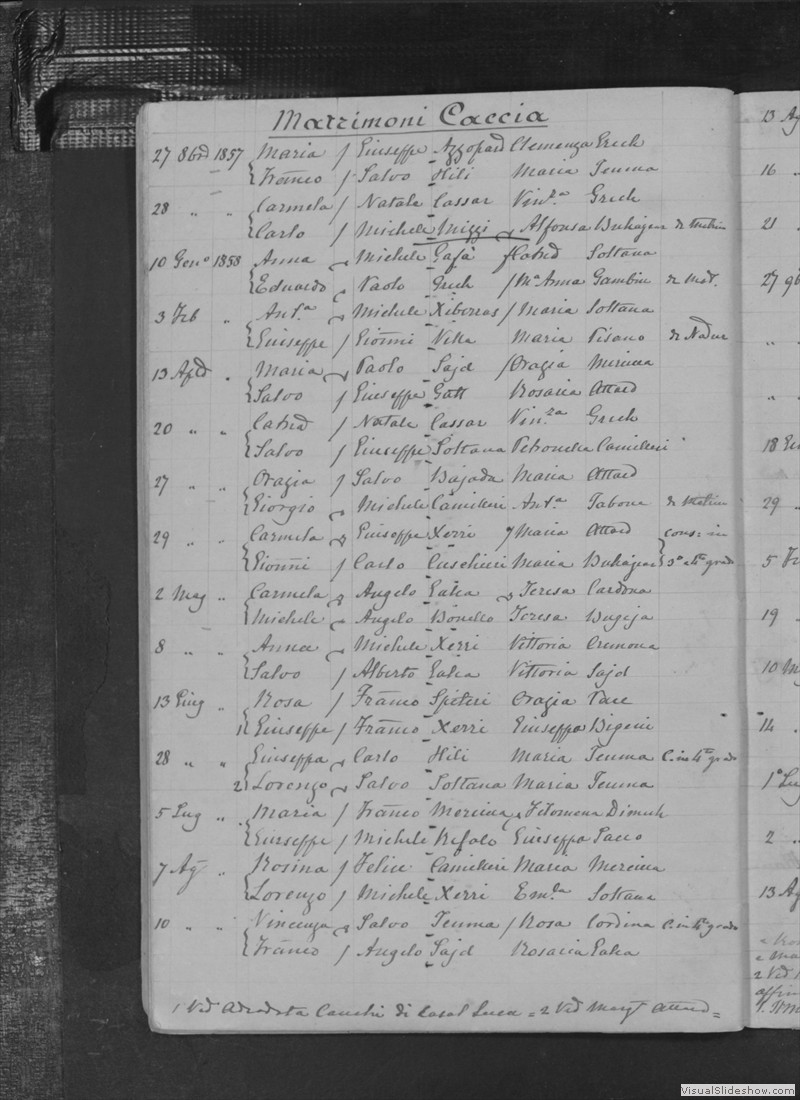 Matrimoni Caccia
27 8bre 1857 Maria / Giuseppe Azzopard Clemenza Grech
Franco / Salvo Hili Maria Teuma
28 " " Carmela / Natale Cassar Vinza Grech
Carlo / Michele Mizzi Alfonsa Buhagiar
10 Geno 1858 Anna Michele Gafà Soltana
Eduardo Paolo Grech / Ma Anna Gambin
3 Feb " Anta Michele Xiberras / Maria Soltana
Giuseppe / Gionni Vella Maria Pisano de Nadur
13 " Maria Paolo Sajd / Grazia Mercieca
Salvo / Giuseppe Gatt Rosaria Attard
20 " " / Natale Cassar Vinza Grech
Salvo / Giuseppe Soltana Petronilla Camilleri
27 " " Grazia / Salvo Bajada Maria Attard
Giorgio Michele Camilleri Anta Tabone
29 " " Carmela Giuseppe Xerri Maria Attard
Gionni / Carlo Cuschieri Maria Buhagiar
2 Mag " Carmela Angelo Galea Teresa Cardona
Michele Angelo Bonello Teresa Bugeja
8 " " Anna Michele Xerri Vittoria Cremona
Salvo / Alberto Galea Vittoria Sajd
13 Giug " Rosa / Franco Spiteri Grazia Pace
1 Giuseppe / Franco Xerri Giuseppa Bigeni
28 " " Giuseppa Carlo Hili Maria Teuma
2 Lorenzo Salvo Soltana Maria Teuma
5 Lug " Maria / Franco Mercieca Filomena Dimech
Giuseppe / Michele Refalo Giuseppa
7 Ag " Rosina / Felice Camilleri Maria Mercieca
Lorenzo / Michele Xerri Soltana
10 " " Vincenza Salvo Teuma / Rosa Cordina
Franco / Angelo Sajd Rosaria Galea
1 Ved Cauchi di Casal Luca = 2 Ved Attard =
13 Ag
16 "
21
27
18
29 "
5
19
10
14
1
2
13 Ag
VisualSlideshow.com